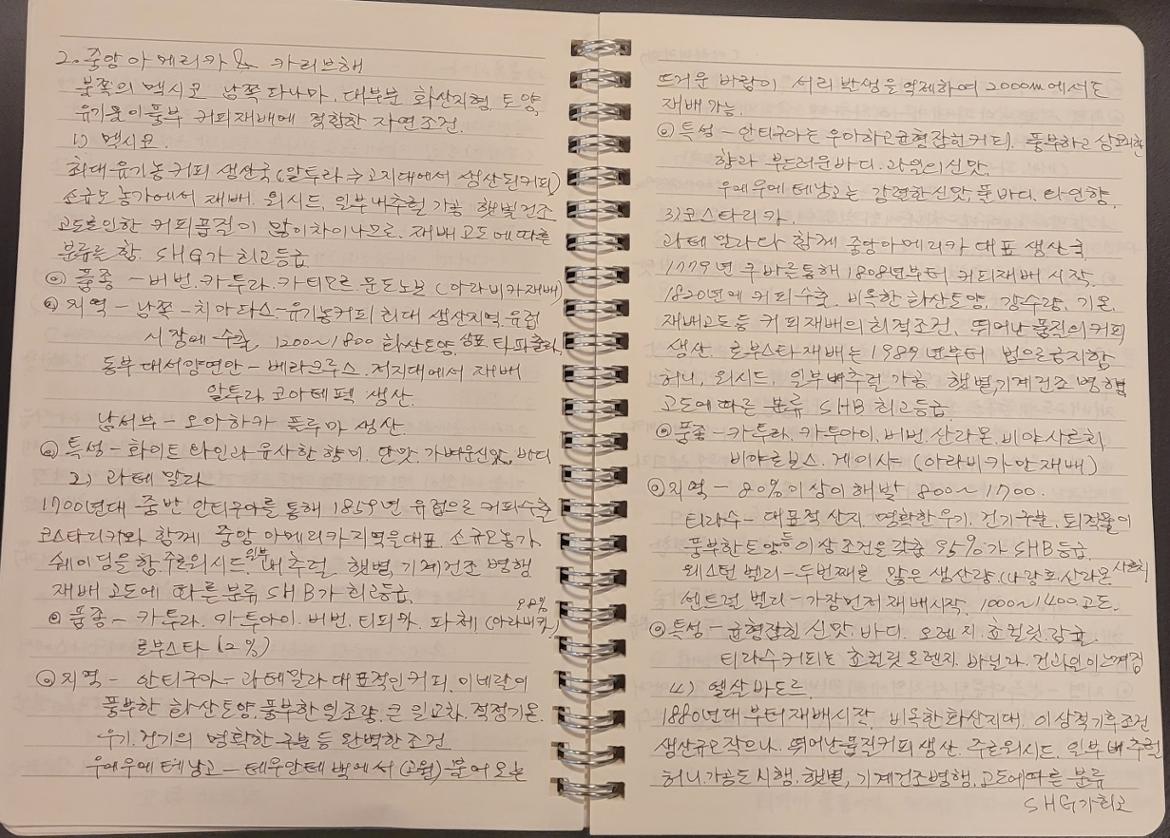 2. 중앙아메리카 & 카리브해
북쪽의 멕시코 남쪽 파나마. 대부분 화산지형 토양,
유기물이 풍부 커피재배에 적합한 자연조건.
1) 멕시코.
최대 유기농 커피 생산국 (알투라 → 고지대에서 생산된 커피)
소규모 농가에서 재배. 워시드, 일부 내추럴 가공 햇빛건조
고도로 인한 커피품질이 많이 차이나므로. 재배고도에 따른
분류를 함. SHG가 최고등급
◎ 품종 - 버번. 카투라. 카티모르 문도노보 (아라비카재배)
◎ 지역 - 남쪽 - 치아파스 - 유기농커피 최대 생산지역. 유럽
시장에 수출, 1200~1800 화산토양, 상표 타파출라,
동부 대서양연안 - 베라크루스. 저지대에서 재배
알투라 코아테펙 생산.
남서부 - 오아하카 플루마 생산.
◎ 특성 - 화이트 와인과 유사한 향미. 단맛. 가벼운신맛, 바디
2) 과테말라
1700년대 중반 안티구아를 통해 1859년 유럽으로 커피수출
코스타리카와 함께 중앙 아메리카지역을 대표. 소규모농가
쉐이딩을 함 주로워시드, 일부 내추럴, 햇볕, 기계건조 병행
재배고도에 따른 분류 SHB가 최고등급,
◎ 품종 - 카투라. 카투아이. 버번. 티피카. 파체 (아라비카) 98%
로부스타 (2%)
◎ 지역 - 안티구아 - 과테말라 대표적인 커피. 미네랄이
풍부한 화산토양, 풍부한 일조량, 큰 일교차, 적정기온.
우기. 건기의 명확한 구분 등 완벽한 조건
우에우에 테낭고 - 테우안테벡에서 불어 오는
뜨거운 바람이 서리 발생을 억제하여 2000m에서도
재배 가능.
◎ 특성 - 안티구아는 우아하고 균형잡힌 커피. 풍부하고 상쾌한
향과 부드러운바디. 과일의신맛.
우에우에 테낭고는 강렬한신맛, 풀바디. 와인향.
3) 코스타리카.
과테말라와 함께 중앙아메리카 대표 생산국
1779년 쿠바를통해 1808년부터 커피재배 시작.
1820년에 커피수출. 비옥한 화산토양, 강수량, 기온.
재배고도등 커피재배의 최적조건. 뛰어난 품질의 커피
생산. 로부스타재배는 1989년부터 법으로금지함
허니, 워시드. 일부내추럴 가공 햇볕, 기계건조 병행
고도에 따른 분류 SHB 최고등급
◎ 품종 - 카투라. 카투아이. 버번. 산라몬. 비야사르치
비야로보스. 게이샤 (아라비카만 재배)
◎ 지역 - 80% 이상이 해발 800~1700.
티라수 - 대표적 산지. 명확한 우기. 건기구분, 퇴적물이
풍부한 토양등 이상조건을 갖춤 95%가 SHB등급.
웨스턴 벨리 - 두번째로 많은 생산량. (나랑호, 산라몬 사르치
센트럴 벨리 - 가장먼저 재배시작. 1000~1400고도.
◎ 특성 - 균형잡힌 신맛. 바디. 오렌지. 초컬릿. 감귤.
티라수 커피는 초컬릿 오렌지. 바닐라. 건과일이느껴짐
4) 엘살바도르.
1880년대부터재배시작. 비옥한 화산지대. 이상적기후조건
생산규모작으나. 뛰어난품질커피 생산. 주로워시드. 일부 내추럴
허니.가공도시행. 햇볕, 기계건조병행. 고도에따른 분류
SHG가최고